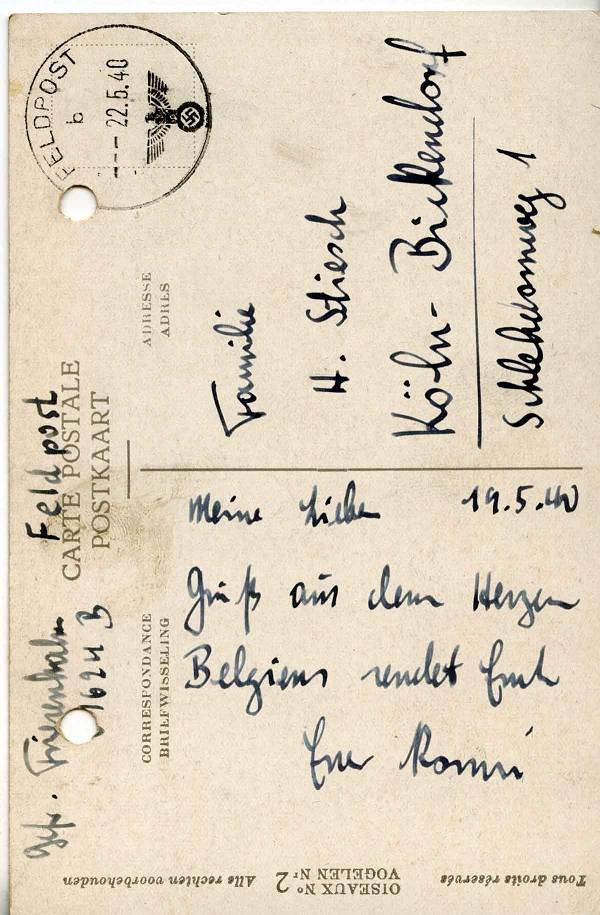 Gefr. Friesenhahn
1624 B
Feldpost
CARTE POSTALE
POSTKAART
FELDPOST
b
--- 22.5.40
CORRESPONDANCE
BRIEFWISSELING
ADRESSE
ADRES
Meine Lieben 19.5.40
Gruß aus dem Herzen
Belgiens sendet Euch
Euer
Familie
H. Stiesch
Köln-Bickendorf
Schlehdornweg 1
Tous droits réservés
OISEAUX Nº 2
VOGELEN Nr
Alle rechten voorbehouden